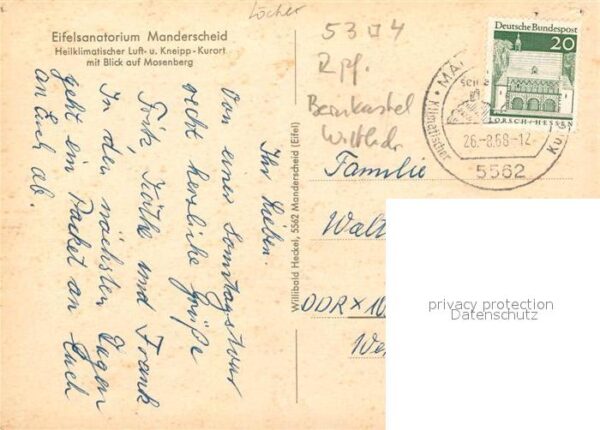 Löcher
Eifelsanatorium Manderscheid
Heilklimatischer Luft- u. Kneipp-Kurort
mit Blick auf Mosenberg
Ihr Lieben.
Von einer Sonntagstour
recht herzliche Grüße
Fritz, Käthe und Frank
In den nächsten Tagen
geht ein Packet an Euch
an Euch ab.
Willibald Heckel, 5562 Manderscheid (Eifel)
53 4
Rpf.
Bernkastel
Wittlich
Deutsche Bundespost
20
LORSCH/HESSEN
MA
Klimatischer
26.-8.68-12
5562
Familie
Walt
DDR
We
privacy protection
Datenschutz